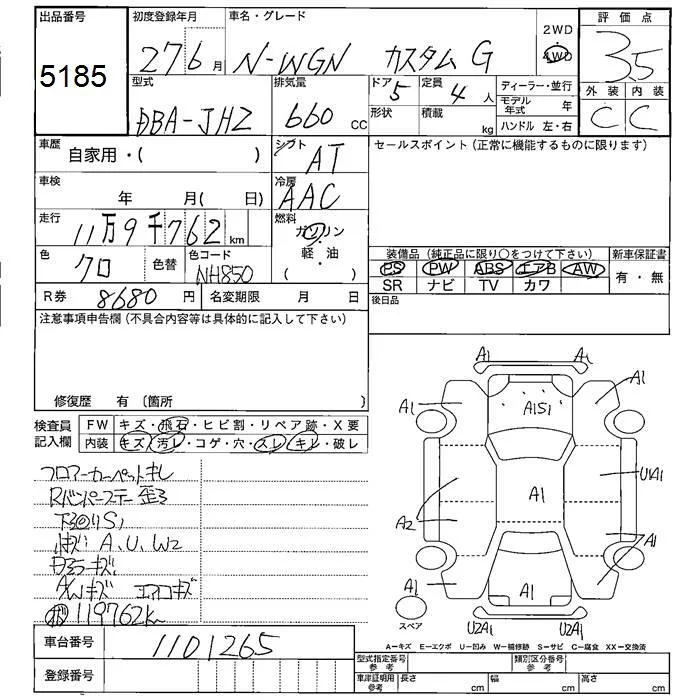 出品番号 5185
初度登録年月 27 6 月
車名・グレード N-WGN カスタム G
2WD
4WD
評価点 3.5
外装 内装
C C
型式 DBA-JH2
排気量 660 cc
ドア 5
定員 4 人
形状
積載 kg
ディーラー・並行
モデル年式 年
ハンドル 左・右
車歴 自家用・( )
シフト AT
セールスポイント (正常に機能するものに限ります)
車検 年 月( 日)
冷房 AAC
走行 11万9千762 km
燃料 ガソリン・軽油
( )
色 クロ 色替
色コード NH850
R券 8680 円
名変期限 月 日
装備品 (純正品に限り○をつけて下さい) 新車保証書
PS PW ABS エアB AW 有・無
SR ナビ TV カワ
後日品
注意事項申告欄 (不具合内容等は具体的に記入して下さい)
修復歴 有 〔箇所 〕
検査員記入欄
FW キズ・飛石・ヒビ割・リペア跡・X要
内装 キズ・汚レ・コゲ・穴・スレ・キレ・破レ
フロアーカーペットキレ
Rバンパーステー歪ミ
下廻りS1
小キズ A、U、W2
ガラスキズ
A/Wキズ エアロキズ
119762k
A1 A1
A1 A1S1 A1
A2 A1 U1A1
A1
A1 A1
スペア
U2A1 U2A1
A－キズ E－エクボ U－凹み W－補修跡 S－サビ C－腐食 XX－交換済
車台番号 1101265
登録番号
型式指定番号 参考
類別区分番号 参考
車庫証明用 参考 長さ cm 幅 cm 高さ cm